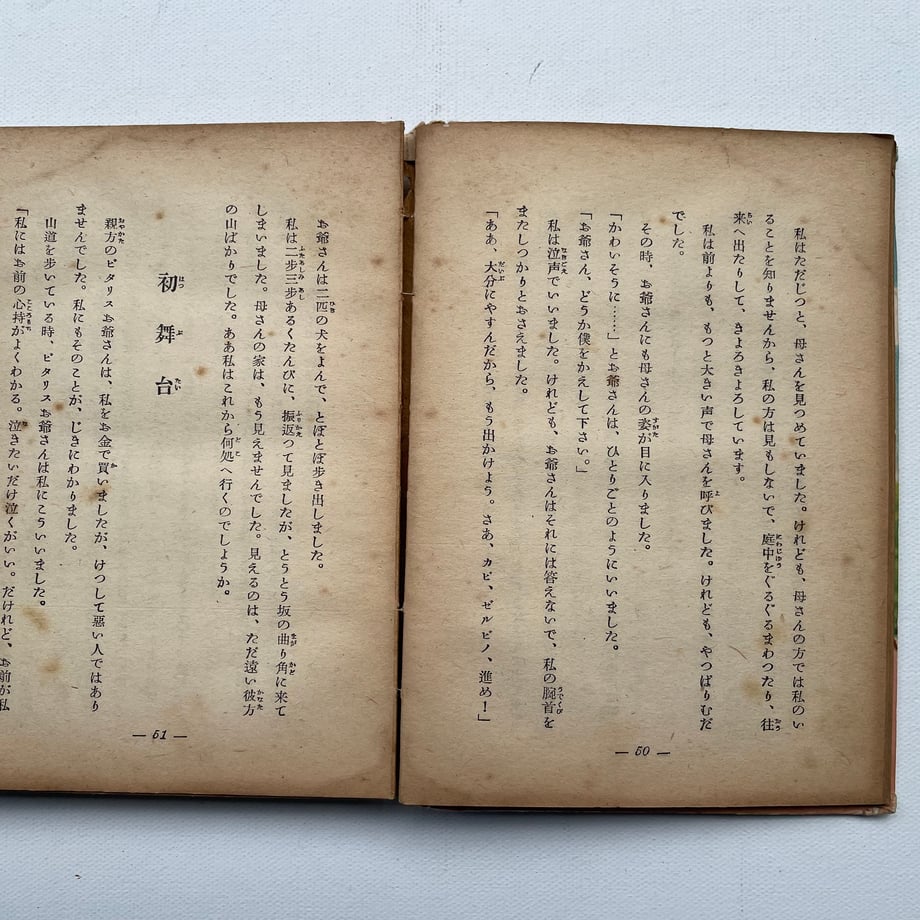 私はただじつと、母さんを見つめていました。けれども、母さんの方では私のい
ることを知りませんから、私の方は見もしないで、庭中をぐるぐるまわつたり、往
来へ出たりして、きょろきょろしています。
私は前よりも、もつと大きい声で母さんを呼びました。けれども、やつぱりむだ
でした。
その時、お爺さんにも母さんの姿が目に入りました。
「かわいそうに……」とお爺さんは、ひとりごとのようにいいました。
「お爺さん、どうか僕をかえして下さい。」
私は泣声でいいました。けれども、お爺さんはそれには答えないで、私の腕首を
またしつかりとおさえました。
「ああ、大分にやすんだから、もう出かけよう。さあ、カピ、ゼルビノ、進め！」
— 50 —
お爺さんは三匹の犬をよんで、とぼとぼ歩き出しました。
私は二歩三歩あるくたんびに、振返つて見ましたが、とうとう坂の曲り角に来て
しまいました。母さんの家は、もう見えませんでした。見えるのは、ただ遠い彼方
の山ばかりでした。ああ私はこれから何処へ行くのでしょうか。
初舞台
親方のピタリスお爺さんは、私をお金で買いましたが、けつして悪い人ではあり
ませんでした。私にもそのことが、じきにわかりました。
山道を歩いている時、ピタリスお爺さんは私にこういいました。
「私にはお前の心持がよくわかる。泣きたいだけ泣くがいい。だけれど、お前が私
— 51 —